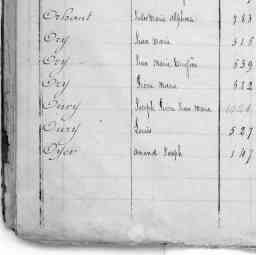 Orhant Jules Marie Alphonse 263
Ory Jean Marie 515
Ory Jean Marie Eugène 539
Ory Pierre Marie 522
Oury Joseph Pierre Jean Marie 1026
Oury Louis 527
Oyer Amand Joseph 147